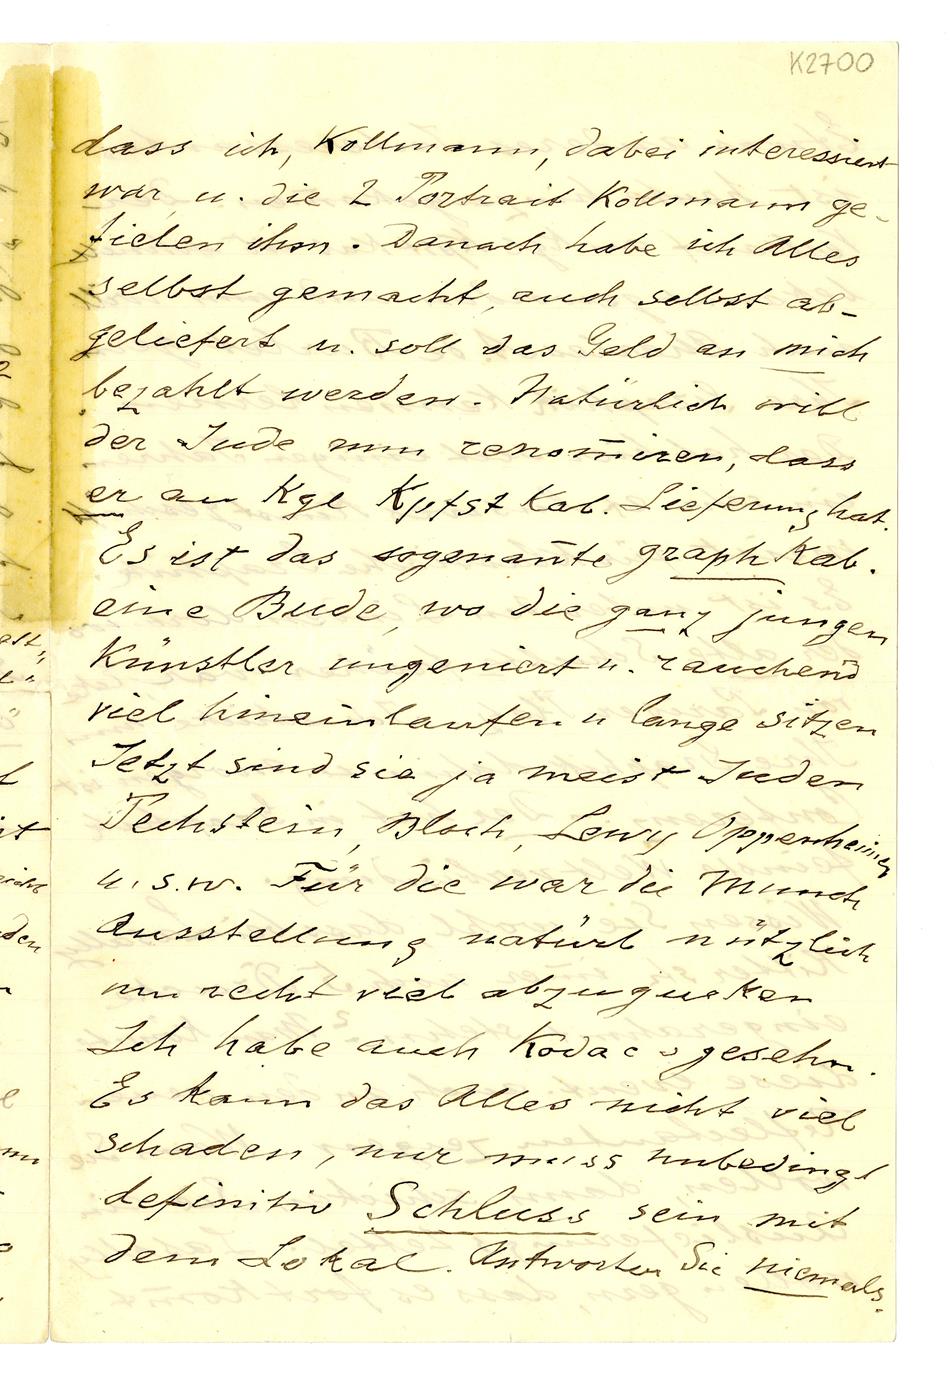 K2700
dass ich, Kollmann, dabei interessiert
war, u. die 2 Portrait Kollmann ge-
fielen ihm. Danach habe ich Alles
selbst gemacht, auch selbst ab-
geliefert u. soll das Geld an mich
bezahlt werden. Natürlich will
der Jude nun renom̄iren, dass
er an Kgl Kpfst Kab. Lieferung hat.
Es ist das sogenan̄te graph Kab.
eine Bude, wo die ganz jungen
Künstler ungeniert u. rauchend
viel hineinlaufen u lange sitzen
Jetzt sind sie ja meist Juden
Pechstein, Bloch, Lewy Oppenheimer
u.s.w. Für die war die Munch
Ausstellung natürl nützlich
um recht viel abzugucken
Ich habe auch Kodacs gesehn.
Es kann das Alles nicht viel
schaden, nur muss unbedingt
definitiv Schluss sein mit
dem Lokal. Antworten Sie niemals.